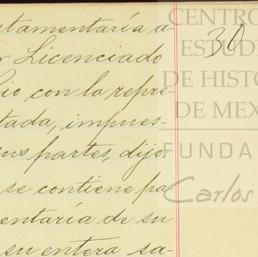 stamentaría a-
r Licenciado
lio con la repre-
tada, impues-
sus partes, dijo:
se contiene pa
entaría de su
su entera sa-
30
CENTRO
ESTUD
DE HISTO
DE MEX
FUNDA
Carlos